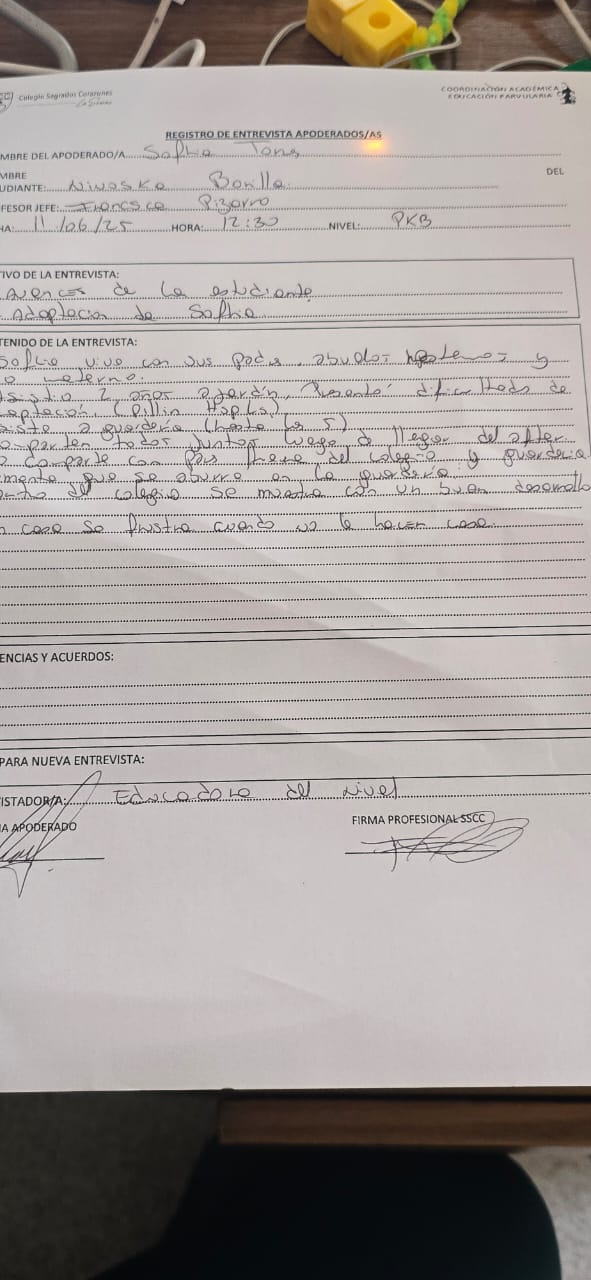 Colegio Sagrados Corazones
COORDINACIÓN ACADÉMICA
EDUCACIÓN PARVULARIA
REGISTRO DE ENTREVISTA APODERADOS/AS
MBRE DEL APODERADO/A Sofhia
MBRE DEL
UDIANTE: Bonilla
FESOR JEFE: Francisca Pizarro
HA: 11/06/25 HORA: 12:30 NIVEL: PKB
TIVO DE LA ENTREVISTA:
de la estudiante
Adaptacion de Sofhia
TENIDO DE LA ENTREVISTA:
vive con sus padres, abuelos y
o materno.
2 años a jardín, Presentó dificultades de
siste a guardería (hasta las 5)
todos juntos luego de llegar del after
comparte con del colegio y guardería
que se aburre en la guardería
del colegio se muestra con un buen desarrollo
casa se frustra cuando no le hacen caso.
ENCIAS Y ACUERDOS:
PARA NUEVA ENTREVISTA:
ISTADOR/A: Educadora del nivel
A APODERADO
FIRMA PROFESIONAL SSCC